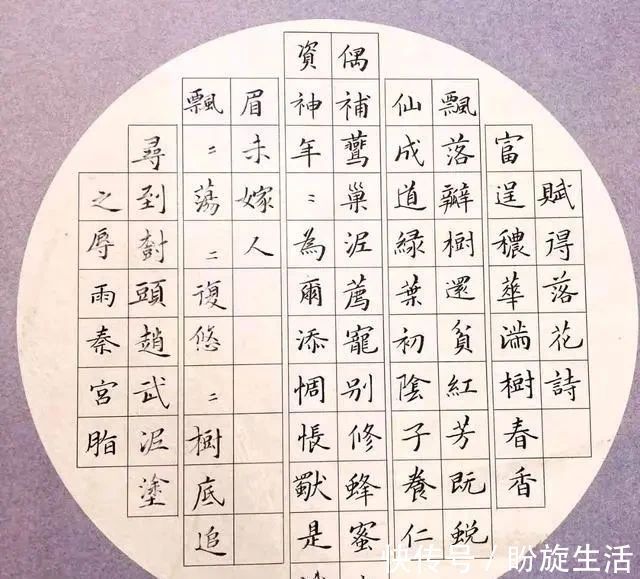 賦得落花詩
富逞穠華滿樹春香
飄落瓣樹還貧紅芳既蛻
仙成道緑葉初陰子養仁
偶補鷰巢泥薦寵别修蜂蜜
資神年〻為爾添惆悵獃是
眉未嫁人
飄〻蕩〻復悠〻樹底追
尋到樹頭趙武泥塗
之辱雨秦宮脂
快传号 / 盼旋生活